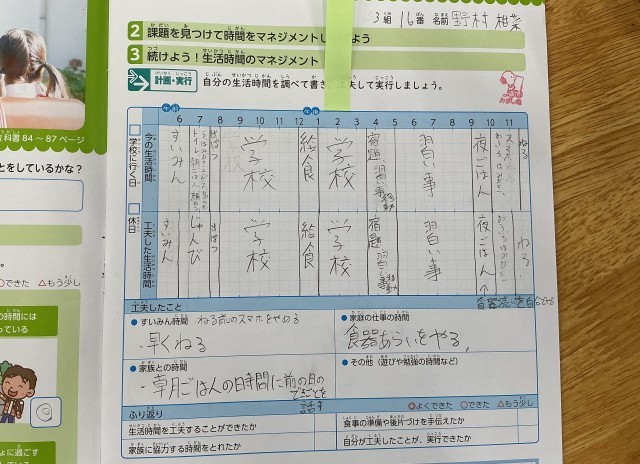 3組 16番 名前 野村
2 課題を見つけて時間をマネジメントし よう
3 続けよう！生活時間のマネジメント
計画・実行 自分の生活時間を調べて書き 工夫して実行しましょう。
教科書84～87ページ
とをしているかな？
午前 午後
6 7 8 9 10 11 12 1 2 3 4 5 6 7 8 9 10 11
学校に行く日
今の生活時間
すいみん
学校
給食
学校
宿題
習い事
夜ごはん
ねる
休日
工夫した生活時間
すいみん
じゅんび
学校
給食
学校
宿題
習い事
夜ごはん
ねる
工夫したこと
●すいみん時間 ねる前のスマホをやめる
・早くねる
●家庭の仕事の時間
食器あらいをやる。
●家族との時間
・朝ごはんの時間に前の日の
できごとを
話す
●その他（遊びや勉強の時間など）
ふり返り
◎よくできた ○できた △もう少し
生活時間を工夫することができたか
食事の準備や後片づけを手伝えたか
家族に協力する時間をとれたか
自分が工夫したことが、実行できたか
○できた △もう少し
の時間には
っている
ょに過ごす
している